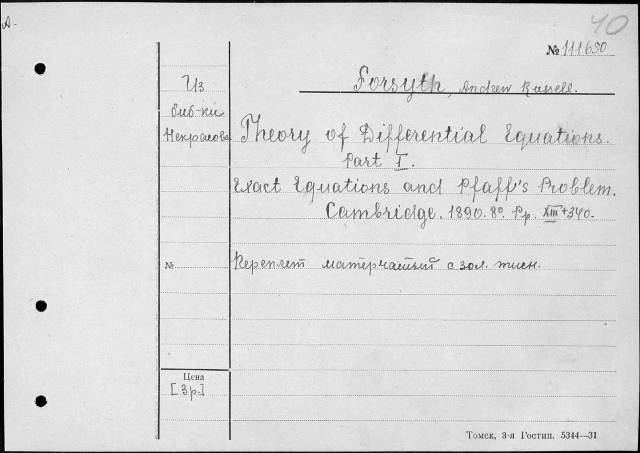 A-
40
№ 111650
Из
биб-ки
Некрасова
Forsyth, Andrew Russell.
Theory of Differential Equations.
Part I.
Exact Equations and Pfaff's Problem.
Cambridge. 1890. 8°. Pp. XIII+340.
№
Переплет матерчатый с зол. тисн.
Цена
[3р.]
Томск, 3-я Гостип. 5344—31